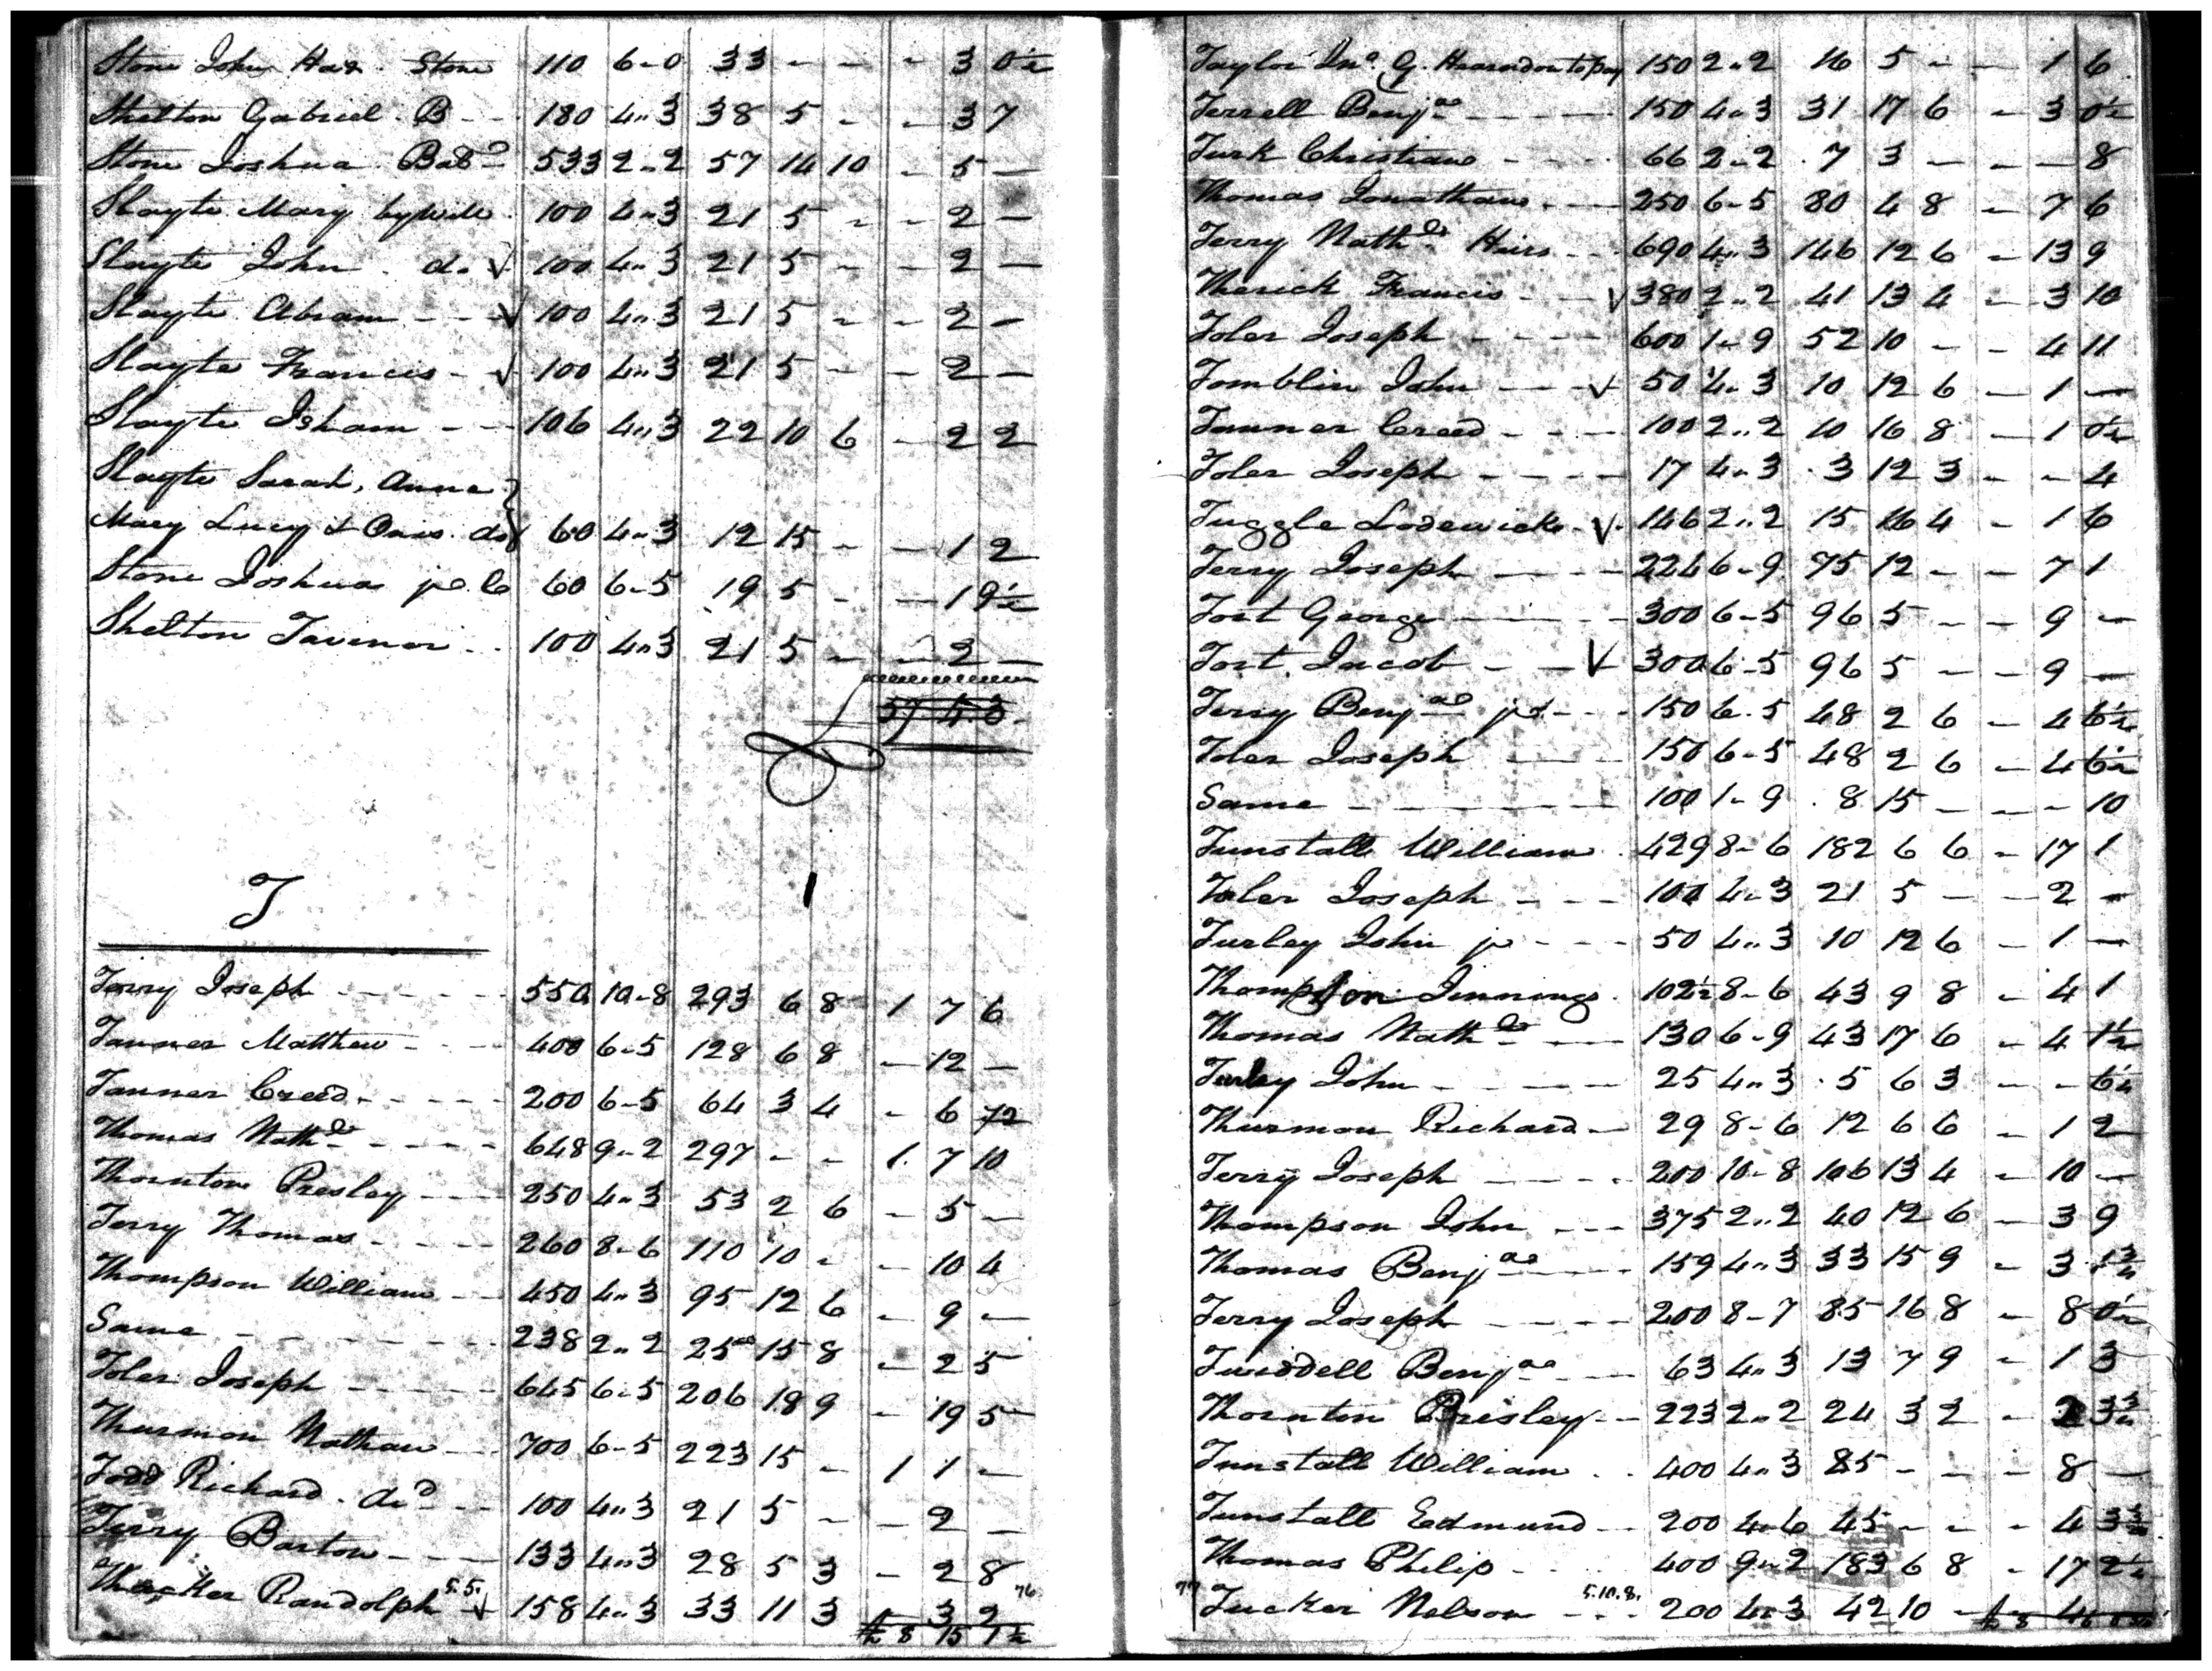 Stone John Hal. Stone 110 6-0 33 - - - 3 0½
Shelton Gabriel. B - - 180 4"3 38 5 - - 3 7
Stone Joshua 533 2"2 57 14 10 - 5 -
Slayte Mary by will 100 4"3 21 5 - - 2 -
Slayte John. do √ 100 4"3 21 5 - - 2 -
Slayte Abram - - √ 100 4"3 21 5 - - 2 -
Slayte Francis - √ 100 4"3 21 5 - - 2 -
Slayte Isham - - 106 4"3 22 10 6 - 2 2
Slayte Sarah, Anna }
Mary Lucy & do } 60 4"3 12 15 - - 1 2
Stone Joshua jr. C 60 6-5 19 5 - - 1 9½
Shelton Tavenor - - 100 4"3 21 5 - - 2 -
57 4.3
T
Terry Joseph - - - - 550 10-8 293 6 8 1 7 6
Tanner Matthew - - - 400 6-5 128 6 8 - 12 -
Tanner Creed - - - - 200 6-5 64 3 4 - 6
Thomas Nathl - - - - 648 9-2 297 - - 1 7 10
Thornton Presley - - - 250 4"3 53 2 6 - 5 -
Terry Thomas - - - - 260 8-6 110 10 - - 10 4
Thompson William - - 450 4"3 95 12 6 - 9 -
Same - - - - - - 238 2"2 25 15 8 - 2 5
Toler Joseph - - - - 645 6-5 206 18 9 - 19 5
Thurmon Nathan - - 700 6-5 223 15 - 1 1 -
Todd Richard. - - 100 4"3 21 5 - - 2 -
Terry Barton - - - 133 4"3 28 5 3 - 2 8
Thacker Randolph 5.5. √ 158 4"3 33 11 3 - 3 2 76
8 15 1½
Taylor Jno. G. to pay 150 2"2 16 5 - - 1 6
Terrell Benjaa - - - - 150 4"3 31 17 6 - 3 0½
Turk Christian - - - 66 2"2 7 3 - - - 8
Thomas Jonathan - - - 250 6-5 80 4 8 - 7 6
Terry Nathl Heirs - - 690 4"3 146 12 6 - 13 9
Therick Francis - - √ 380 2"2 41 13 4 - 3 10
Toler Joseph - - - - 600 1-9 52 10 - - 4 11
Tomblin John - - - √ 50 4"3 10 12 6 - 1 -
Tanner Creed - - - - 100 2"2 10 16 8 - 1 0½
Toler Joseph - - - - 17 4"3 3 12 3 - - 4
Tuggle Lodewick - √ 146 2"2 15 16 4 - 1 6
Terry Joseph - - - - 224 6-9 75 12 - - 7 1
Tost George - - - - 300 6-5 96 5 - - 9 -
Tost Jacob - - √ 300 6-5 96 5 - - 9 -
Terry Benjaa jr - - - 150 6-5 48 2 6 - 4 6½
Toler Joseph - - - 150 6-5 48 2 6 - 4 6½
Same - - - - - - 100 1-9 8 15 - - - 10
Tunstall William - 429 8-6 182 6 6 - 17 1
Toler Joseph - - - 100 4"3 21 5 - - 2 -
Turley John jr - - - 50 4"3 10 12 6 - 1 -
Thompson Jennings - 102½ 8-6 43 9 8 - 4 1
Thomas Nathl - - - 130 6-9 43 17 6 - 4 1½
Turley John - - - - 25 4"3 5 6 3 - - 6¼
Thurmon Richard - 29 8-6 12 6 6 - 1 2
Terry Joseph - - - - 200 10-8 106 13 4 - 10 -
Thompson John - - - 375 2"2 40 12 6 - 3 9
Thomas Benjaa - - - 159 4"3 33 15 9 - 3 1¾
Terry Joseph - - - - 200 8-7 85 16 8 - 8 0½
Twiddell Benjaa - - 63 4"3 13 7 9 - 1 3
Thornton Presley - - 223 2"2 24 3 2 - 2 3¾
Tunstall William - - 400 4"3 85 - - - 8 -
Tunstall Edmund - - 200 4-6 45 - - - 4 3¾
Thomas Philip - - - 400 9-2 183 6 8 - 17 2¼
77 Tucker Nelson - - - 5.10.8. 200 4"3 42 10 - - 4